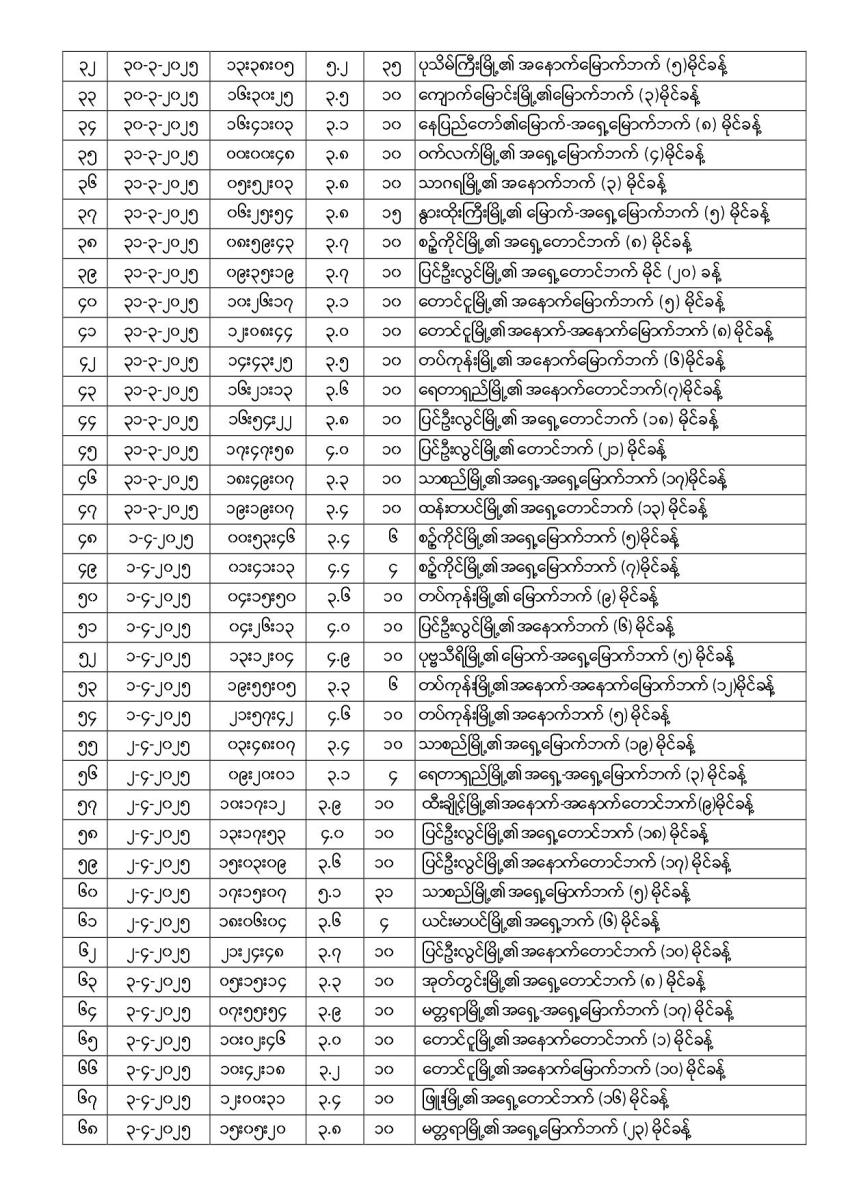 ၃၂ ၃၀-၃-၂၀၂၅ ၁၃း၃၈း၀၅ ၅.၂ ၃၅ ပုသိမ်ကြီးမြို့၏ အနောက်မြောက်ဘက် (၅)မိုင်ခန့်
၃၃ ၃၀-၃-၂၀၂၅ ၁၆း၃၀း၂၅ ၃.၅ ၁၀ ကျောက်မြောင်းမြို့၏မြောက်ဘက် (၃)မိုင်ခန့်
၃၄ ၃၀-၃-၂၀၂၅ ၁၆း၄၁း၀၃ ၃.၁ ၁၀ နေပြည်တော်၏မြောက်-အရှေ့မြောက်ဘက် (၈) မိုင်ခန့်
၃၅ ၃၁-၃-၂၀၂၅ ၀၀း၀၀း၄၈ ၃.၈ ၁၀ ဝက်လက်မြို့၏ အရှေ့မြောက်ဘက် (၄)မိုင်ခန့်
၃၆ ၃၁-၃-၂၀၂၅ ၀၅း၅၂း၀၃ ၃.၈ ၁၀ သာဂရမြို့၏ အနောက်ဘက် (၃) မိုင်ခန့်
၃၇ ၃၁-၃-၂၀၂၅ ၀၆း၂၅း၅၄ ၃.၈ ၁၅ နွားထိုးကြီးမြို့၏ မြောက်-အရှေ့မြောက်ဘက် (၅) မိုင်ခန့်
၃၈ ၃၁-၃-၂၀၂၅ ၀၈း၅၉း၄၃ ၃.၇ ၁၀ စဉ့်ကိုင်မြို့၏ အရှေ့တောင်ဘက် (၈) မိုင်ခန့်
၃၉ ၃၁-၃-၂၀၂၅ ၀၉း၃၅း၁၉ ၃.၇ ၁၀ ပြင်ဦးလွင်မြို့၏ အရှေ့တောင်ဘက် မိုင် (၂၀) ခန့်
၄၀ ၃၁-၃-၂၀၂၅ ၁၀း၂၆း၁၇ ၃.၁ ၁၀ တောင်ငူမြို့၏ အနောက်မြောက်ဘက် (၅) မိုင်ခန့်
၄၁ ၃၁-၃-၂၀၂၅ ၁၂း၀၈း၄၄ ၃.၀ ၁၀ တောင်ငူမြို့၏ အနောက်-အနောက်မြောက်ဘက် (၈) မိုင်ခန့်
၄၂ ၃၁-၃-၂၀၂၅ ၁၄း၄၃း၂၅ ၃.၅ ၁၀ တပ်ကုန်းမြို့၏ အနောက်မြောက်ဘက် (၆)မိုင်ခန့်
၄၃ ၃၁-၃-၂၀၂၅ ၁၆း၂၁း၁၃ ၃.၆ ၁၀ ရေတာရှည်မြို့၏ အနောက်တောင်ဘက်(၇)မိုင်ခန့်
၄၄ ၃၁-၃-၂၀၂၅ ၁၆း၅၄း၂၂ ၃.၈ ၁၀ ပြင်ဦးလွင်မြို့၏ အရှေ့တောင်ဘက် (၁၈) မိုင်ခန့်
၄၅ ၃၁-၃-၂၀၂၅ ၁၇း၄၇း၅၈ ၄.၀ ၁၀ ပြင်ဦးလွင်မြို့၏ တောင်ဘက် (၂၁) မိုင်ခန့်
၄၆ ၃၁-၃-၂၀၂၅ ၁၈း၄၉း၀၇ ၃.၃ ၁၀ သာစည်မြို့၏ အရှေ့-အရှေ့မြောက်ဘက် (၁၇)မိုင်ခန့်
၄၇ ၃၁-၃-၂၀၂၅ ၁၉း၁၉း၀၇ ၃.၄ ၁၀ ထန်းတပင်မြို့၏ အရှေ့တောင်ဘက် (၁၃) မိုင်ခန့်
၄၈ ၁-၄-၂၀၂၅ ၀၀း၅၃း၄၆ ၃.၄ ၆ စဉ့်ကိုင်မြို့၏ အရှေ့မြောက်ဘက် (၅)မိုင်ခန့်
၄၉ ၁-၄-၂၀၂၅ ၀၁း၄၁း၁၃ ၄.၄ ၄ စဉ့်ကိုင်မြို့၏ အရှေ့မြောက်ဘက် (၇)မိုင်ခန့်
၅၀ ၁-၄-၂၀၂၅ ၀၄း၁၅း၅၀ ၃.၆ ၁၀ တပ်ကုန်းမြို့၏ မြောက်ဘက် (၉) မိုင်ခန့်
၅၁ ၁-၄-၂၀၂၅ ၀၄း၂၆း၁၃ ၄.၀ ၁၀ ပြင်ဦးလွင်မြို့၏ အနောက်ဘက် (၆) မိုင်ခန့်
၅၂ ၁-၄-၂၀၂၅ ၁၃း၁၂း၀၄ ၄.၉ ၁၀ ပုဗ္ဗသီရိမြို့၏ မြောက်-အရှေ့မြောက်ဘက် (၅) မိုင်ခန့်
၅၃ ၁-၄-၂၀၂၅ ၁၉း၅၅း၀၅ ၃.၃ ၆ တပ်ကုန်းမြို့၏ အနောက်-အနောက်မြောက်ဘက် (၁၂)မိုင်ခန့်
၅၄ ၁-၄-၂၀၂၅ ၂၁း၅၇း၄၂ ၄.၆ ၁၀ တပ်ကုန်းမြို့၏ အနောက်ဘက် (၅) မိုင်ခန့်
၅၅ ၂-၄-၂၀၂၅ ၀၃း၄၈း၀၇ ၃.၄ ၁၀ သာစည်မြို့၏ အရှေ့မြောက်ဘက် (၁၉) မိုင်ခန့်
၅၆ ၂-၄-၂၀၂၅ ၀၉း၂၀း၀၁ ၃.၁ ၄ ရေတာရှည်မြို့၏ အရှေ့-အရှေ့မြောက်ဘက် (၃) မိုင်ခန့်
၅၇ ၂-၄-၂၀၂၅ ၁၀း၁၇း၁၂ ၃.၉ ၁၀ ထီးချိုင့်မြို့၏ အနောက်-အနောက်တောင်ဘက်(၉)မိုင်ခန့်
၅၈ ၂-၄-၂၀၂၅ ၁၃း၁၇း၅၃ ၄.၀ ၁၀ ပြင်ဦးလွင်မြို့၏ အရှေ့တောင်ဘက် (၁၈) မိုင်ခန့်
၅၉ ၂-၄-၂၀၂၅ ၁၅း၀၃း၀၉ ၃.၆ ၁၀ ပြင်ဦးလွင်မြို့၏ အနောက်တောင်ဘက် (၁၇) မိုင်ခန့်
၆၀ ၂-၄-၂၀၂၅ ၁၇း၁၅း၀၇ ၅.၁ ၃၁ သာစည်မြို့၏ အရှေ့မြောက်ဘက် (၅) မိုင်ခန့်
၆၁ ၂-၄-၂၀၂၅ ၁၈း၀၆း၀၄ ၃.၆ ၄ ယင်းမာပင်မြို့၏ အရှေ့ဘက် (၆) မိုင်ခန့်
၆၂ ၂-၄-၂၀၂၅ ၂၁း၂၄း၄၈ ၃.၇ ၁၀ ပြင်ဦးလွင်မြို့၏ အနောက်တောင်ဘက် (၁၀) မိုင်ခန့်
၆၃ ၃-၄-၂၀၂၅ ၀၅း၁၅း၁၄ ၃.၃ ၁၀ အုတ်တွင်းမြို့၏ အရှေ့တောင်ဘက် (၈ ) မိုင်ခန့်
၆၄ ၃-၄-၂၀၂၅ ၀၇း၅၅း၅၄ ၃.၉ ၁၀ မတ္တရာမြို့၏ အရှေ့-အရှေ့မြောက်ဘက် (၁၇) မိုင်ခန့်
၆၅ ၃-၄-၂၀၂၅ ၁၀း၀၂း၄၆ ၃.၀ ၁၀ တောင်ငူမြို့၏ အနောက်တောင်ဘက် (၁) မိုင်ခန့်
၆၆ ၃-၄-၂၀၂၅ ၁၀း၄၂း၁၈ ၃.၂ ၁၀ တောင်ငူမြို့၏ အနောက်မြောက်ဘက် (၁၀) မိုင်ခန့်
၆၇ ၃-၄-၂၀၂၅ ၁၂း၀၀း၃၁ ၃.၄ ၁၀ ဖြူးမြို့၏ အရှေ့တောင်ဘက် (၁၆) မိုင်ခန့်
၆၈ ၃-၄-၂၀၂၅ ၁၅း၀၅း၂၀ ၃.၈ ၁၀ မတ္တရာမြို့၏ အရှေ့မြောက်ဘက် (၂၃) မိုင်ခန့်